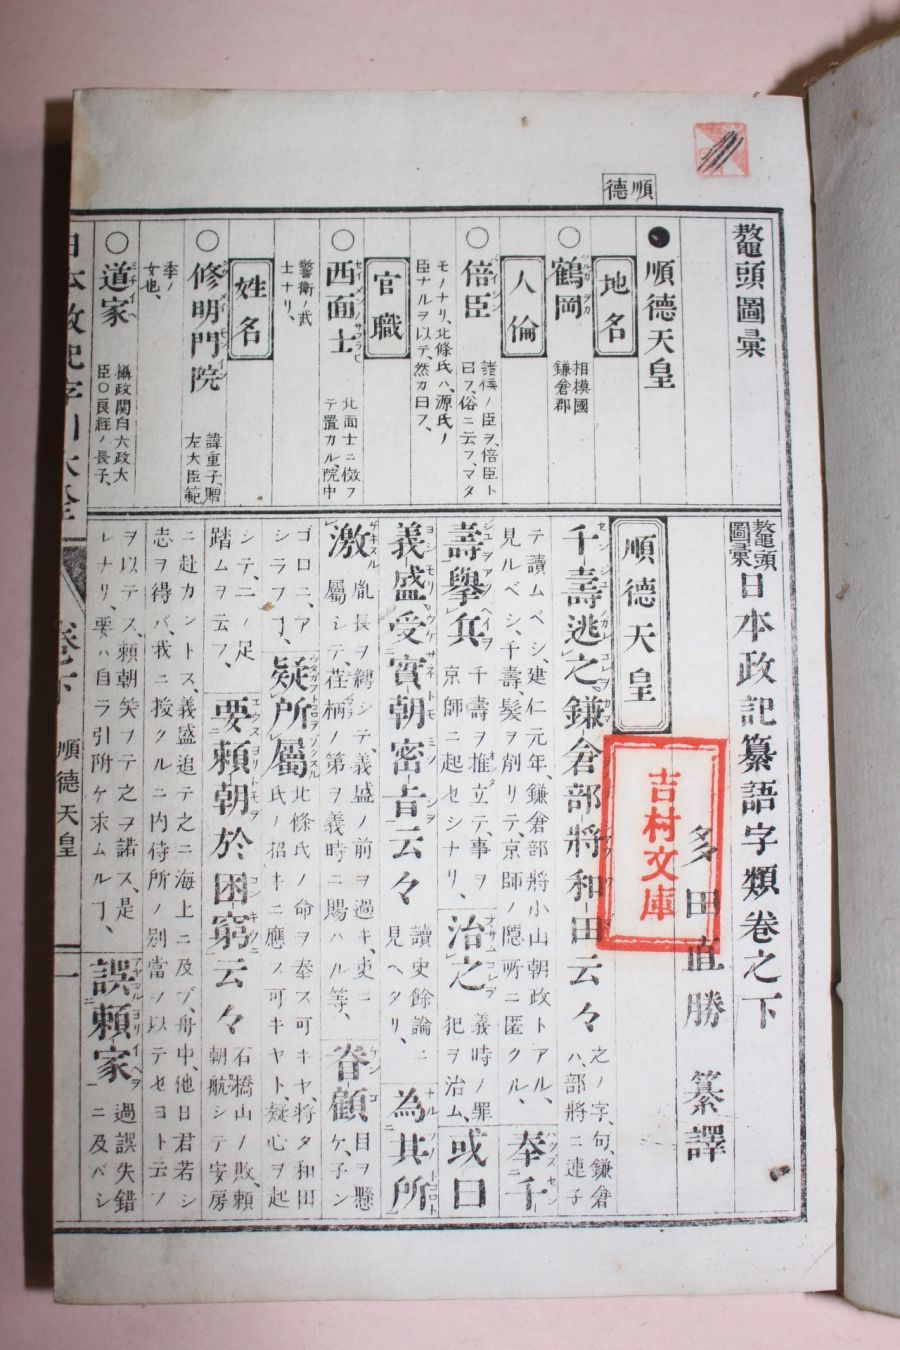 順德
鼇頭圖彙
順德天皇
地名
○鶴岡 相模國鎌倉郡
人倫
○倍臣 諸侯ノ臣ヲ、倍臣ト曰フ、俗ニ云フ、マタ
モノナリ、北條氏ハ、源氏ノ臣ナルヲ以テ、然カ曰フ、
官職
○西面士 北面士ニ傚フテ置カル、院中
警衛ノ武士ナリ、
姓名
○修明門院 諱重子、贈左大臣範
季ノ女也、
○道家 攝政關白太政大臣○良經ノ長子、
鼇頭圖彙 日本政記纂語字類卷之下
多田直勝 纂譯
吉村文庫
順德天皇
千壽逃之鎌倉部將和田云々 之ノ字、句、鎌倉ハ、部將ニ連子
テ讀ムベシ、建仁元年、鎌倉部將小山朝政トアル、見ルベシ、千壽、髮ヲ削リテ、京師ノ隱所ニ匿クル、 奉千
壽擧兵 千壽ヲ推立テ、事ヲ京師ニ起セシナリ、 治之 義時ノ罪犯ヲ治ム、 或曰
義盛受實朝密旨云々 讀史餘論ニ見ヘタリ、 為其所
激 胤長ヲ縛シテ、義盛ノ前ヲ過キ、吏ニ屬シテ、荏柄ノ第ヲ義時ニ賜ハル等、 眷顧 目ヲ懸ケ、子ン
ゴロニ、アシラフヿ、 疑所屬 北條氏ノ命ヲ奉ス可キヤ、將タ和田氏ノ招キニ應ス可キヤト、疑心ヲ起
シテ、二ノ足踏ムヲ云フ、 要賴朝於困窮云々 石橋山ノ敗、賴朝航シテ安房
ニ赴カントス、義盛追テ之ニ海上ニ及ブ、舟中、他日君若シ志ヲ得バ、我ニ授クルニ内侍所ノ別當ヲ以テセヨト云フ
ヲ以テス、賴朝笑フテ之ヲ諾ス、是レナリ、要ハ自ラ引附ケ求ムルヿ、 誤賴家 過誤失錯ニ及ベシ
卷下
順德天皇
一